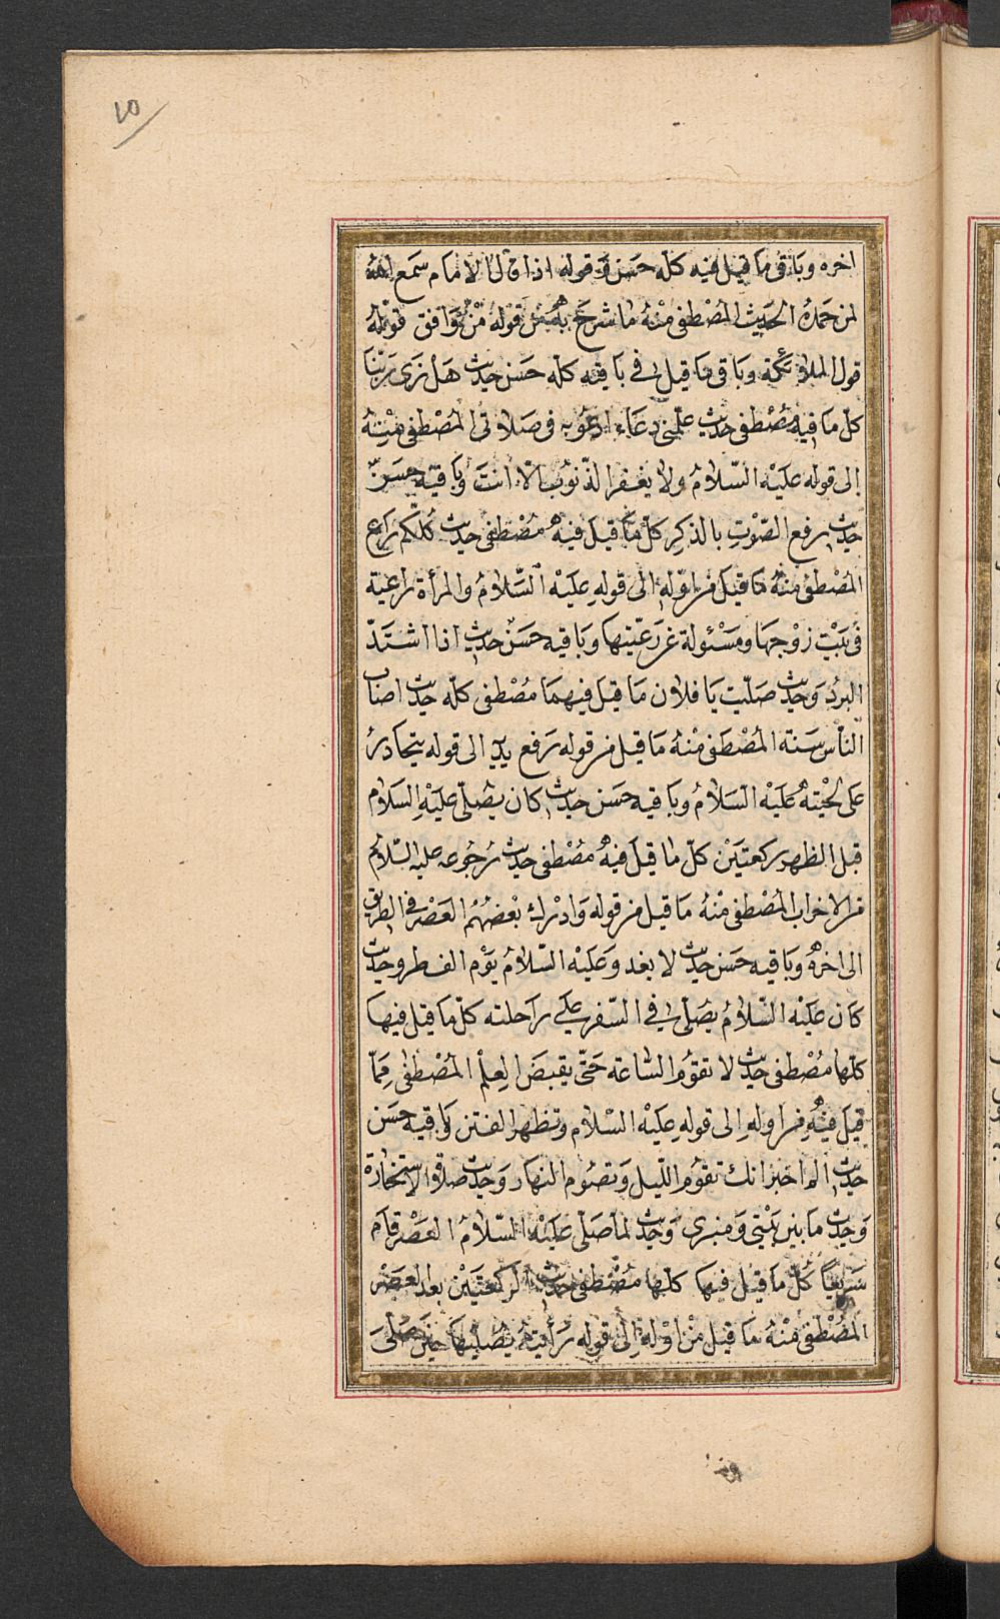 ٢٥
اخره وباقى ما قيل فيه كله حسن وقوله اذا قال الامام سمع الله
لمن حمده الحديث المصطفى منه ما شرح به من قوله من وافق قوله
قول الملائكة وباقى ما قيل فى باقيه كله حسن حديث هل نرى ربنا
كل ما فيه مصطفى حديث علمنى دعاء ادعو به فى صلاتى المصطفى منه
الى قوله عليه السلام ولا يغفر الذنوب الا انت وباقيه حسن
حديث رفع الصوت بالذكر كل ما قيل فيه مصطفى حديث كلكم راع
المصطفى منه ما قيل من اوله الى قوله عليه السلام والمرأة راعية
فى بيت زوجها ومسئولة عن رعيتها وباقيه حسن حديث اذا اشتد
البرد وحديث صليت يا فلان ما قيل فيهما مصطفى كله حديث اصاب
الناس سنة المصطفى منه ما قيل من قوله رفع يديه الى قوله يتحادر
على لحيته عليه السلام وباقيه حسن حديث كان يصلى عليه السلام
قبل الظهر ركعتين كل ما قيل فيه مصطفى حديث رجوعه عليه السلام
من الاحزاب المصطفى منه ما قيل من قوله وادرك بعضهم العصر فى الطريق
الى اخره وباقيه حسن حديث لا يغدو عليه السلام يوم الفطر وحديث
كان عليه السلام يصلى فى السفر على راحلته كل ما قيل فيها
كلها مصطفى حديث لا تقوم الساعة حتى يقبض العلم المصطفى مما
قيل فيه من اوله الى قوله عليه السلام وتظهر الفتن وباقيه حسن
حديث الم اخبر انك تقوم الليل وتصوم النهار وحديث صلاة الاستخارة
وحديث ما بين بيتى ومنبرى وحديث لما صلى عليه السلام العصر قام
سريعا كل ما قيل فيها كلها مصطفى حديث الركعتين بعد العصر
المصطفى منه ما قيل من اوله الى قوله رأيته يصليها حين صلى